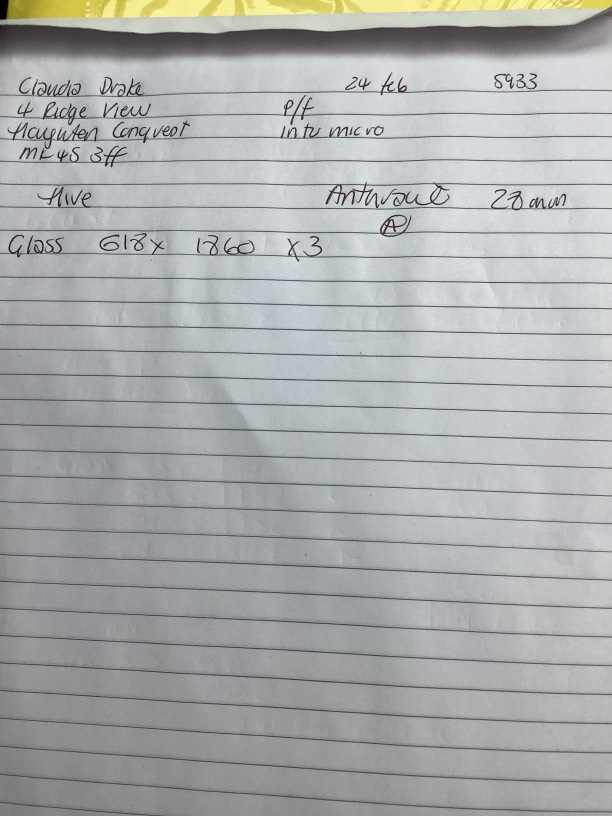 Claudia Drake 24 feb 5933
4 Ridge View P/f
Haynten Conquest intu micro
MK45 3ff
Hive Anthracite 28mm
A
Glass 618 x 1860 x 3